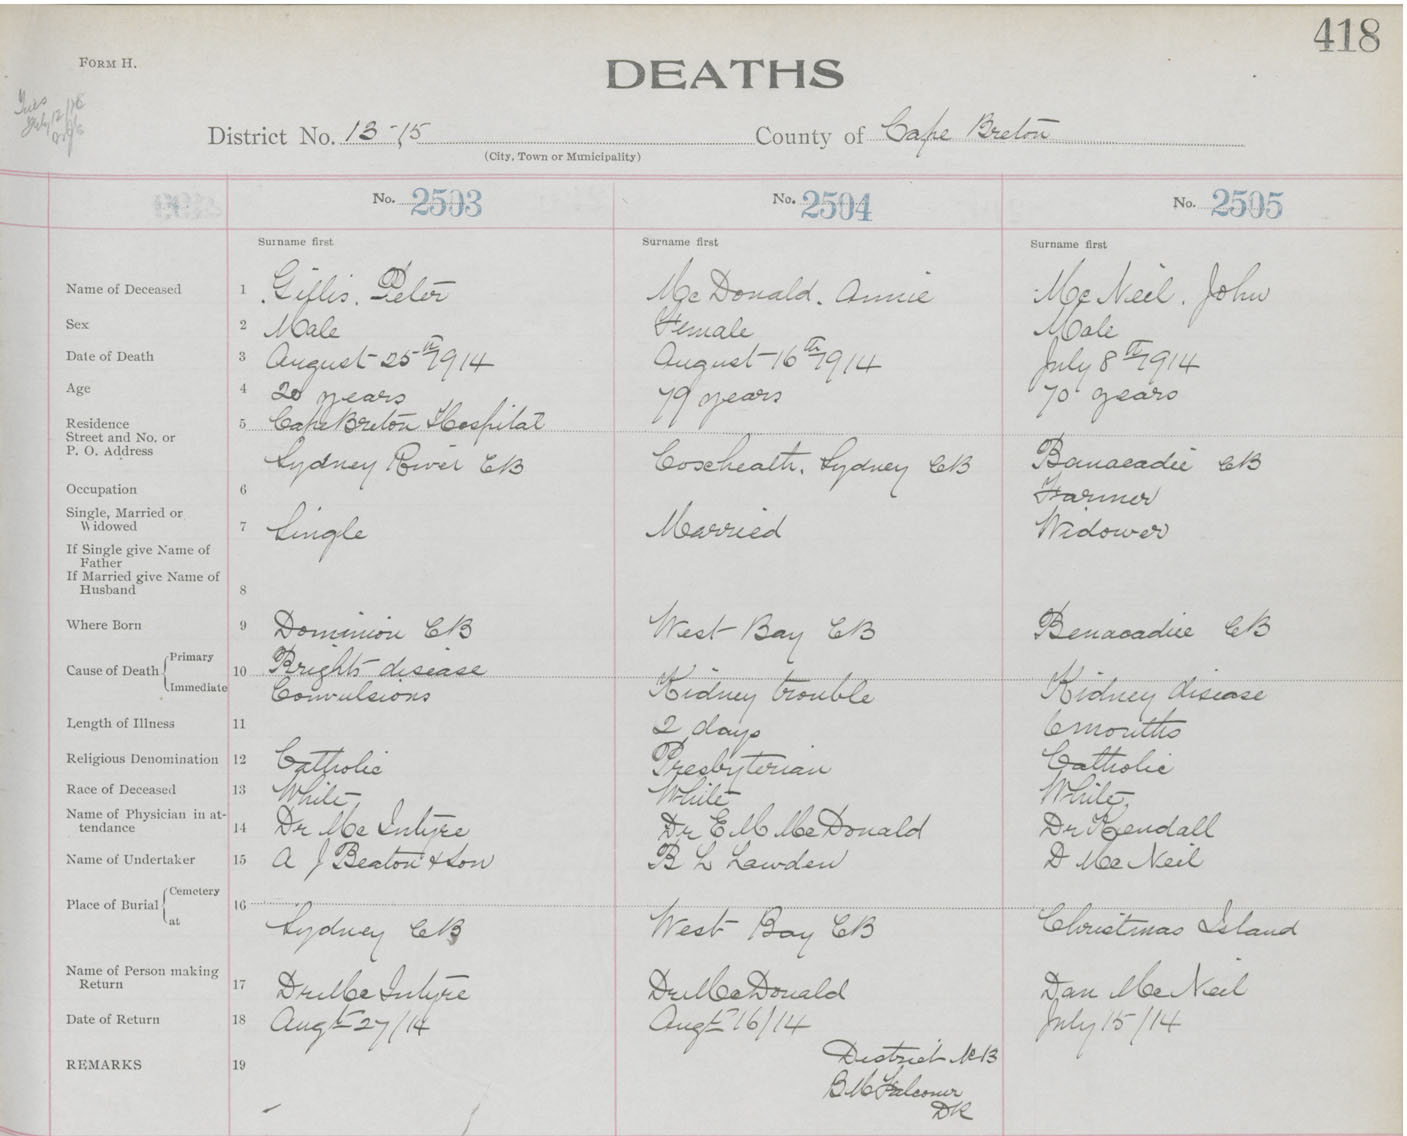 418
FORM H.
DEATHS
July 12/16
District No. 13-15 County of Cape Breton
(City, Town or Municipality)
No. 2503 No. 2504 No. 2505
Surname first Surname first Surname first
Name of Deceased 1 Gillis, Peter McDonald, Annie McNeil, John
Sex 2 Male Female Male
Date of Death 3 August 25th 1914 August 16th 1914 July 8th 1914
Age 4 20 years 79 years 70 years
Residence 5 Cape Breton Hospital
Street and No. or
P. O. Address Sydney River CB Coxheath, Sydney CB Banacadie CB
Occupation 6 Farmer
Single, Married or
Widowed 7 Single Married Widower
If Single give Name of
Father
If Married give Name of
Husband 8
Where Born 9 Dominion CB West Bay CB Benacadie CB
Cause of Death Primary 10 Brights disease
Immediate Convulsions Kidney trouble Kidney disease
Length of Illness 11 2 days 6 months
Religious Denomination 12 Catholic Presbyterian Catholic
Race of Deceased 13 White White White
Name of Physician in at-
tendance 14 Dr McIntyre Dr E M McDonald Dr Kendall
Name of Undertaker 15 A J Beaton & Son B L Lawden D McNeil
Place of Burial Cemetery 16
at Sydney CB West Bay CB Christmas Island
Name of Person making
Return 17 Dr McIntyre Dr McDonald Dan McNeil
Date of Return 18 Augt 27/14 Augt 16/14 July 15/14
REMARKS 19 District No 13
B McFalconer
DR